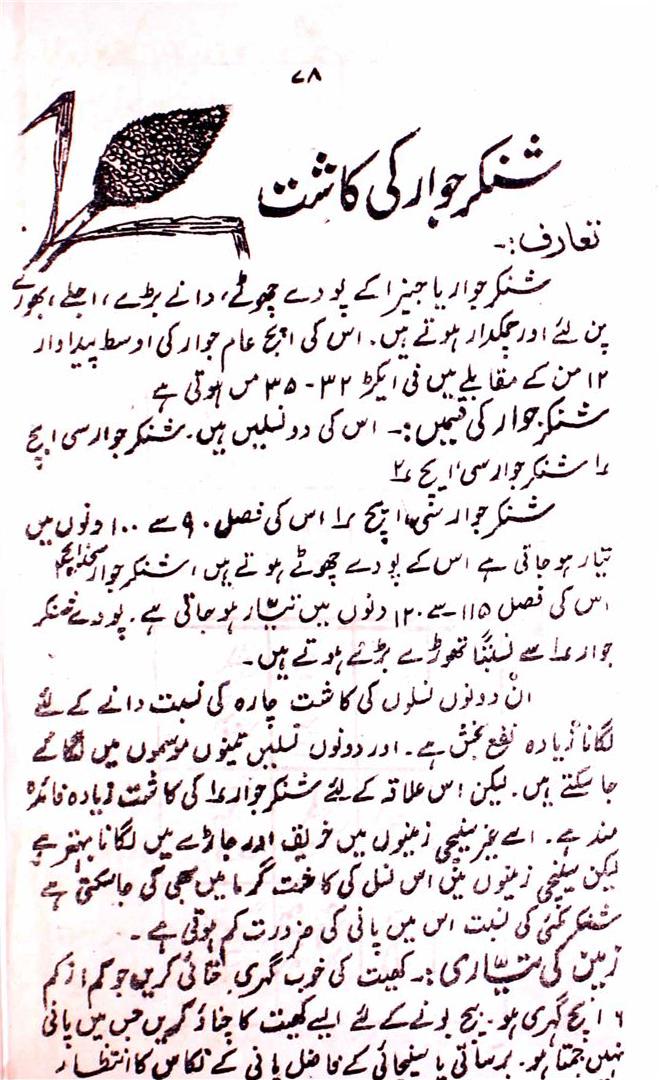 ۷۸
شنکر جوار کی کاشت
تعارف :-
شنکر جوار یا جنیرا کے پودے چھوٹے، دانے بڑے، اجلے، بھورے
پن لئے اور چمکدار ہوتے ہیں۔ اس کی اپج عام جوار کی اوسط پیداوار
۱۲ من کے مقابلے میں فی ایکڑ ۳۲-۳۵ من ہوتی ہے
شنکر جوار کی قسمیں :- اس کی دو نسلیں ہیں۔ شنکر جوار سی ایچ
۱ شنکر جوار سی، ایچ ۲
شنکر جوار سی، ایچ ۱ اس کی فصل ۹۰ سے ۱۰۰ دنوں میں
تیار ہو جاتی ہے اس کے پودے چھوٹے ہوتے ہیں، شنکر جوار
اس کی فصل ۱۱۵ سے ۱۲۰ دنوں میں تیار ہو جاتی ہے۔ پودے شنکر
جوار ۱ سے نسبتاً تھوڑے بڑے ہوتے ہیں۔
ان دونوں نسلوں کی کاشت چارہ کی نسبت دانے کے لئے
لگانا زیادہ نفع بخش ہے۔ اور دونوں نسلیں تینوں موسموں میں لگائے
جا سکتے ہیں۔ لیکن اس علاقہ کے لئے شنکر جوار ۱ کی کاشت زیادہ فائدہ
مند ہے۔ اسے غیر سینچی زمینوں میں خریف اور جاڑے میں لگانا بہتر ہے
لیکن سینچی زمینوں میں اس نسل کی کاشت گرما میں بھی کی جا سکتی ہے
شنکر مکئی کی نسبت اس میں پانی کی ضرورت کم ہوتی ہے۔
زمین کی تیاری :- کھیت کی خوب گہری جتائی کریں جو کم از کم
۶ انچ گہری ہو۔ بیج بونے کے لئے ایسے کھیت کا چناؤ کریں جس میں پانی
نہیں جمتا ہو۔ برساتی یا سینچائی کے فاضل پانی کے نکاس کا انتظار